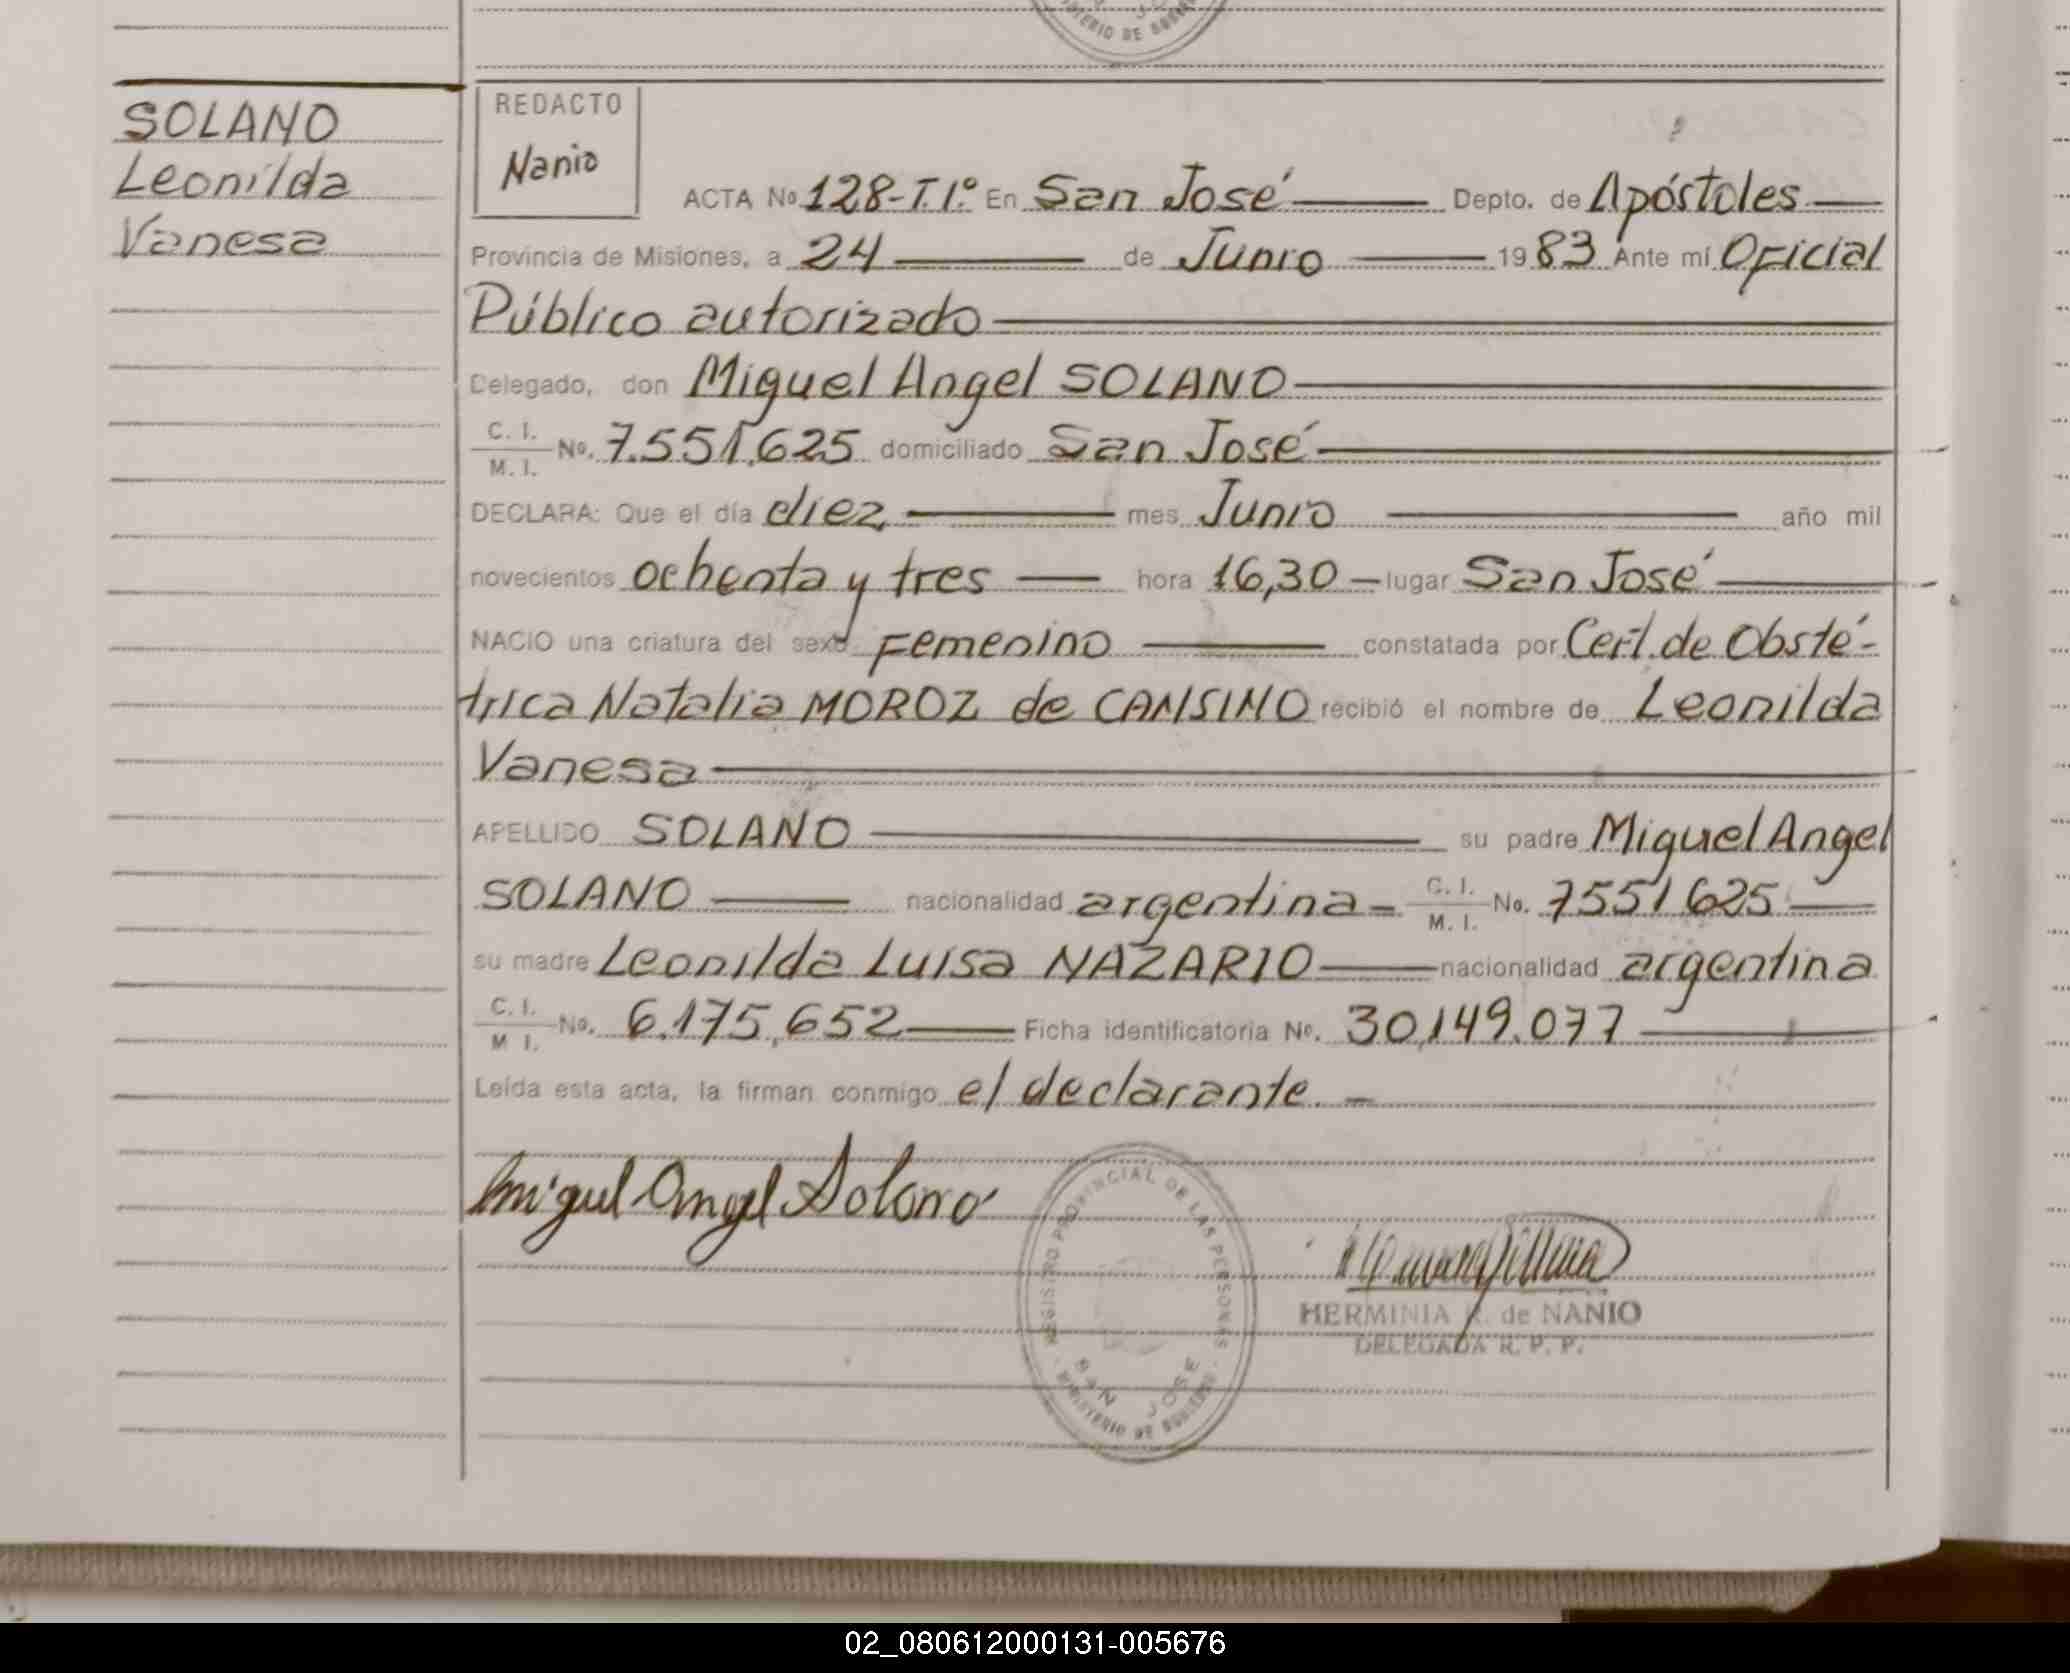 SOLANO
Leonilda
Vanesa
REDACTO
Nanio
ACTA No 128-T.1º. En San José Depto. de Apóstoles
Provincia de Misiones, a 24 de Junio 1983 Ante mí Oficial
Público autorizado
Delegado, don Miguel Angel SOLANO
C. I.
M. I.
No. 7.551,625 domiciliado San José
DECLARA: Que el día diez mes Junio año mil
novecientos ochenta y tres hora 16,30 lugar San José
NACIO una criatura del sexo Femenino constatada por Cert. de Obsté-
trica Natalia MOROZ de CANSINO recibió el nombre de Leonilda
Vanesa
APELLIDO SOLANO su padre Miguel Angel
SOLANO nacionalidad argentina C. I. M. I. No. 7551625
su madre Leonilda Luisa NAZARIO nacionalidad argentina
C. I.
M I.
No. 6.175,652 Ficha identificatoria No. 30,149.077
Leída esta acta, la firman conmigo el declarante.
Miguel Angel Solano
REGISTRO PROVINCIAL DE LAS PERSONAS
SAN JOSE
MINISTERIO DE GOBIERNO
HERMINIA R. de NANIO
DELEGADA R. P. P.
02_080612000131-005676